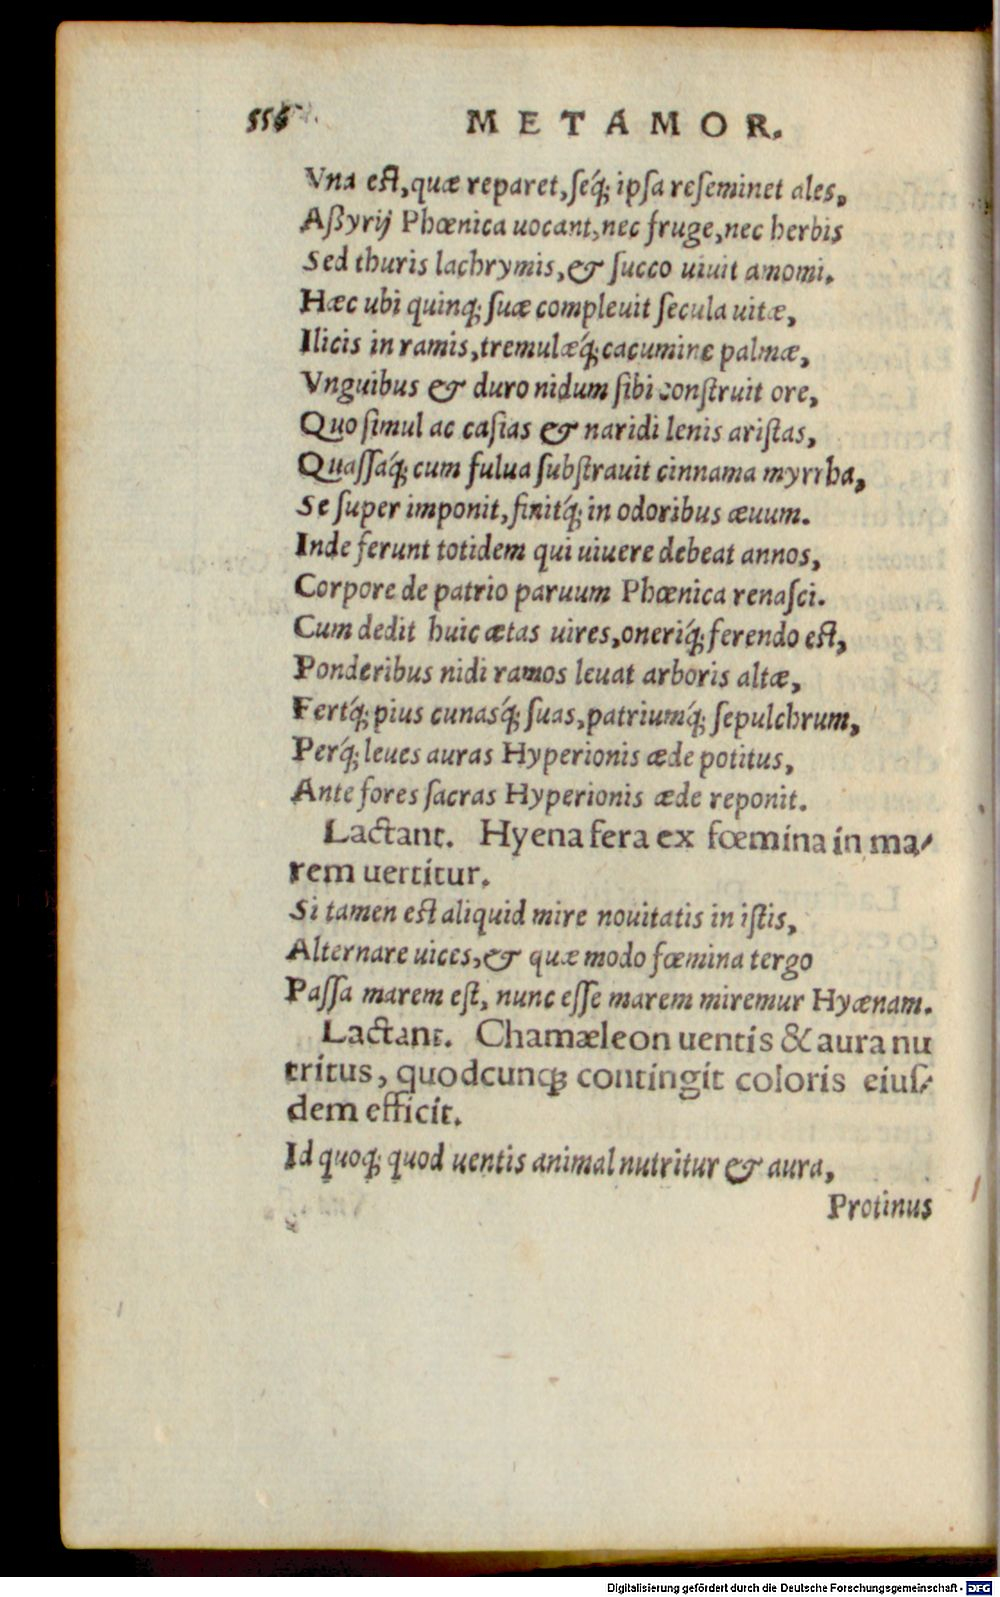 556 METAMOR.
Vna eſt, quæ reparet, ſeq́; ipſa reſeminet ales,
Aßyrij Phœnica uocant, nec fruge, nec herbis
Sed thuris lachrymis, & ſucco uiuit amomi.
Hæc ubi quinq; ſuæ compleuit ſecula uitæ,
Ilicis in ramis, tremulæq́; cacumine palmæ,
Vnguibus & duro nidum ſibi conſtruit ore,
Quo ſimul ac caſias & naridi lenis ariſtas,
Quaſſaq́; cum fulua ſubſtrauit cinnama myrrha,
Se ſuper imponit, finitq́; in odoribus æuum.
Inde ferunt totidem qui uiuere debeat annos,
Corpore de patrio paruum Phœnica renaſci.
Cum dedit huic ætas uires, oneriq́; ferendo eſt,
Ponderibus nidi ramos leuat arboris altæ,
Fertq́; pius cunasq́; ſuas, patriumq́; ſepulchrum,
Perq́; leues auras Hyperionis æde potitus,
Ante fores ſacras Hyperionis æde reponit.
Lactant. Hyena fera ex fœmina in ma-
rem uertitur.
Si tamen eſt aliquid mire nouitatis in iſtis,
Alternare uices, & quæ modo fœmina tergo
Paſſa marem eſt, nunc eſſe marem miremur Hyænam.
Lactant. Chamæleon uentis & aura nu
tritus, quodcunq; contingit coloris eiuſ-
dem efficit.
Id quoq; quod uentis animal nutritur & aura,
Protinus
Digitalisierung gefördert durch die Deutsche Forschungsgemeinschaft - DFG